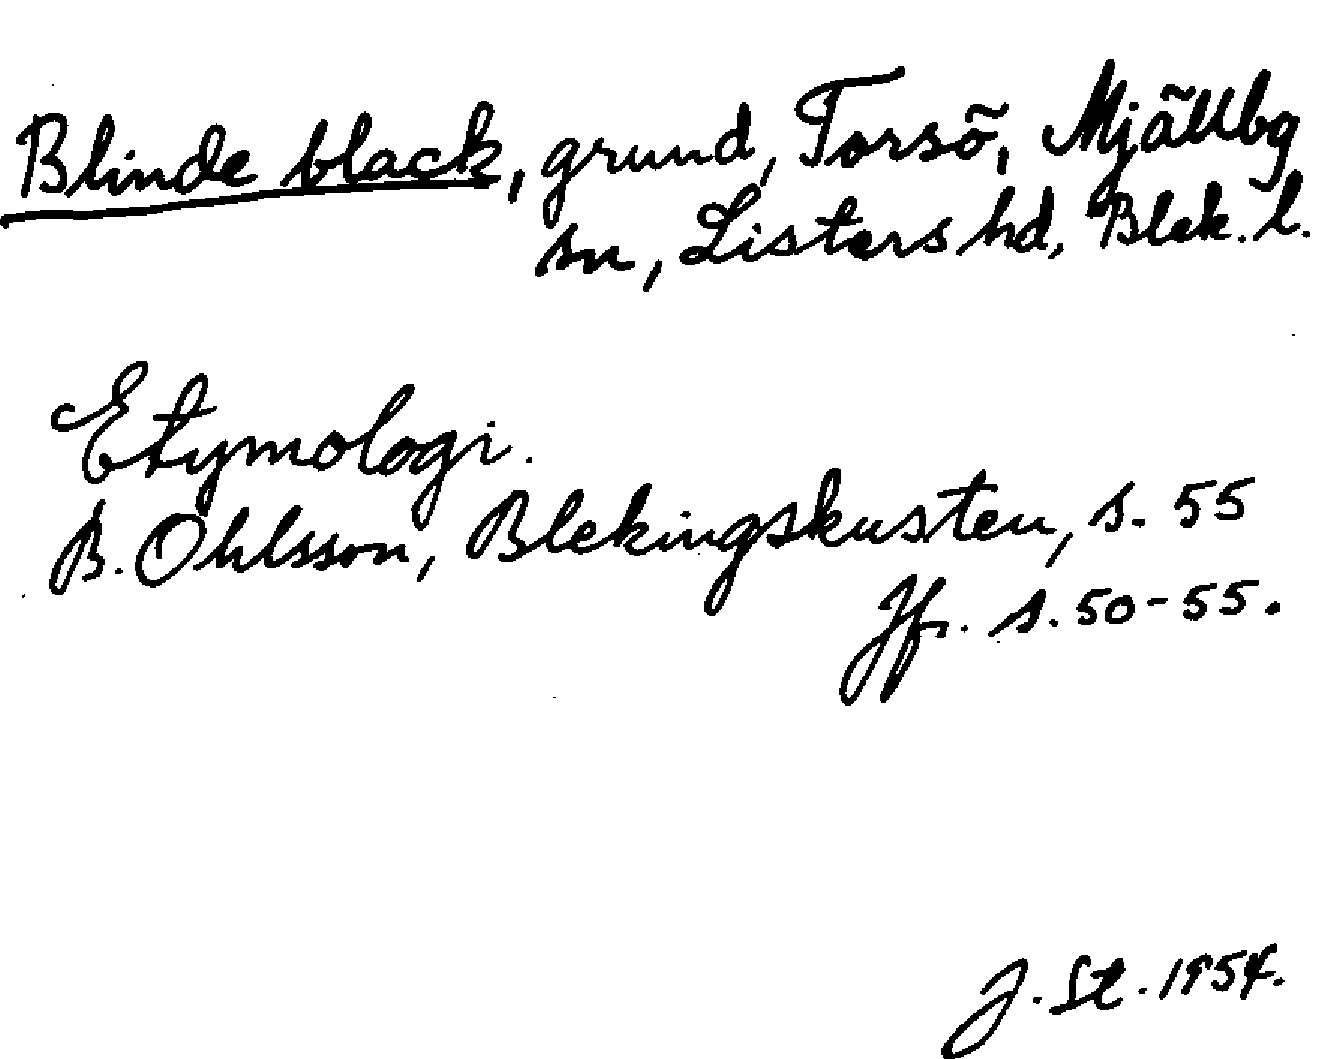 Blinde black, grund, Torsö, Mjällbg
sn, Listers hd, Blek. l.
Etymologi.
B. Ohlsson, Blekingskusten, s. 55
Jfr. s. 50-55.
J. St. 1954.